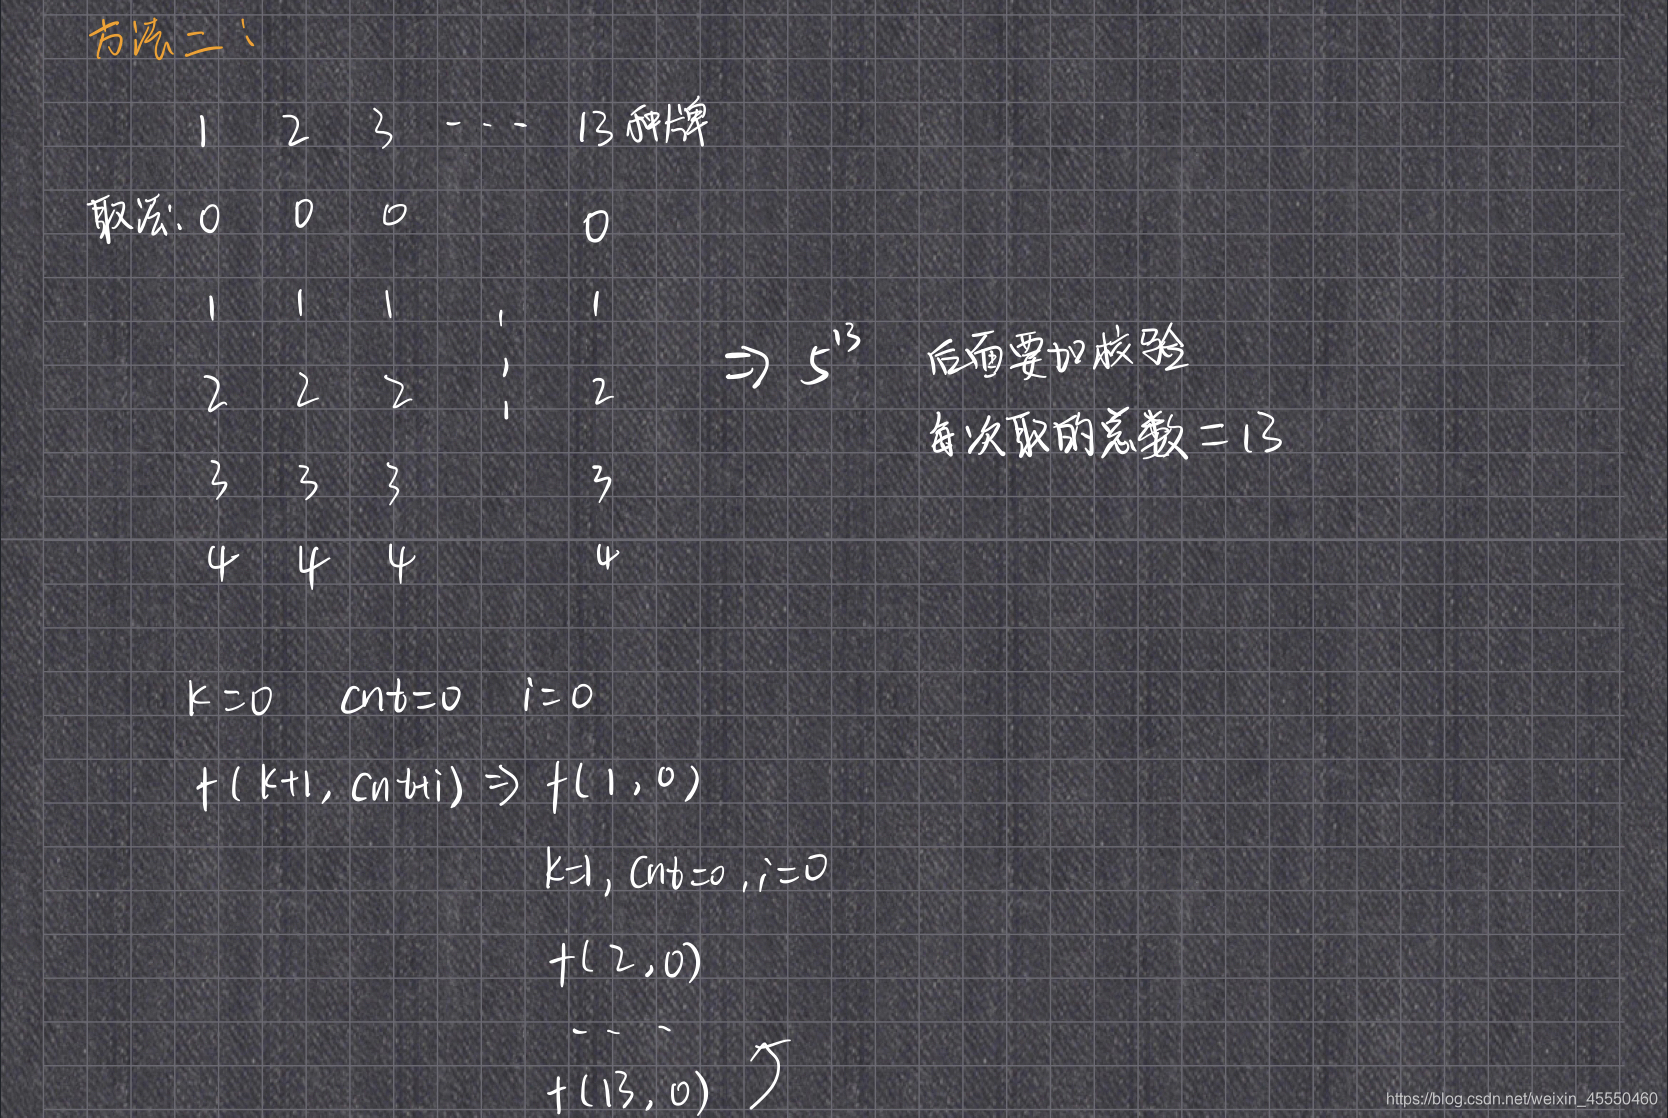 方法二：
1 2 3 --- 13种牌
取法: 0 0 0 0
1 1 1 1
2 2 2 2
3 3 3 3
4 4 4 4
⇒ 5^13 后面要加校验
每次取的总数=13
k=0 cnt=0 i=0
f(k+1, cnt+i) ⇒ f(1,0)
k=1, cnt=0, i=0
f(2,0)
---
f(13,0)
https://blog.csdn.net/weixin_45550460